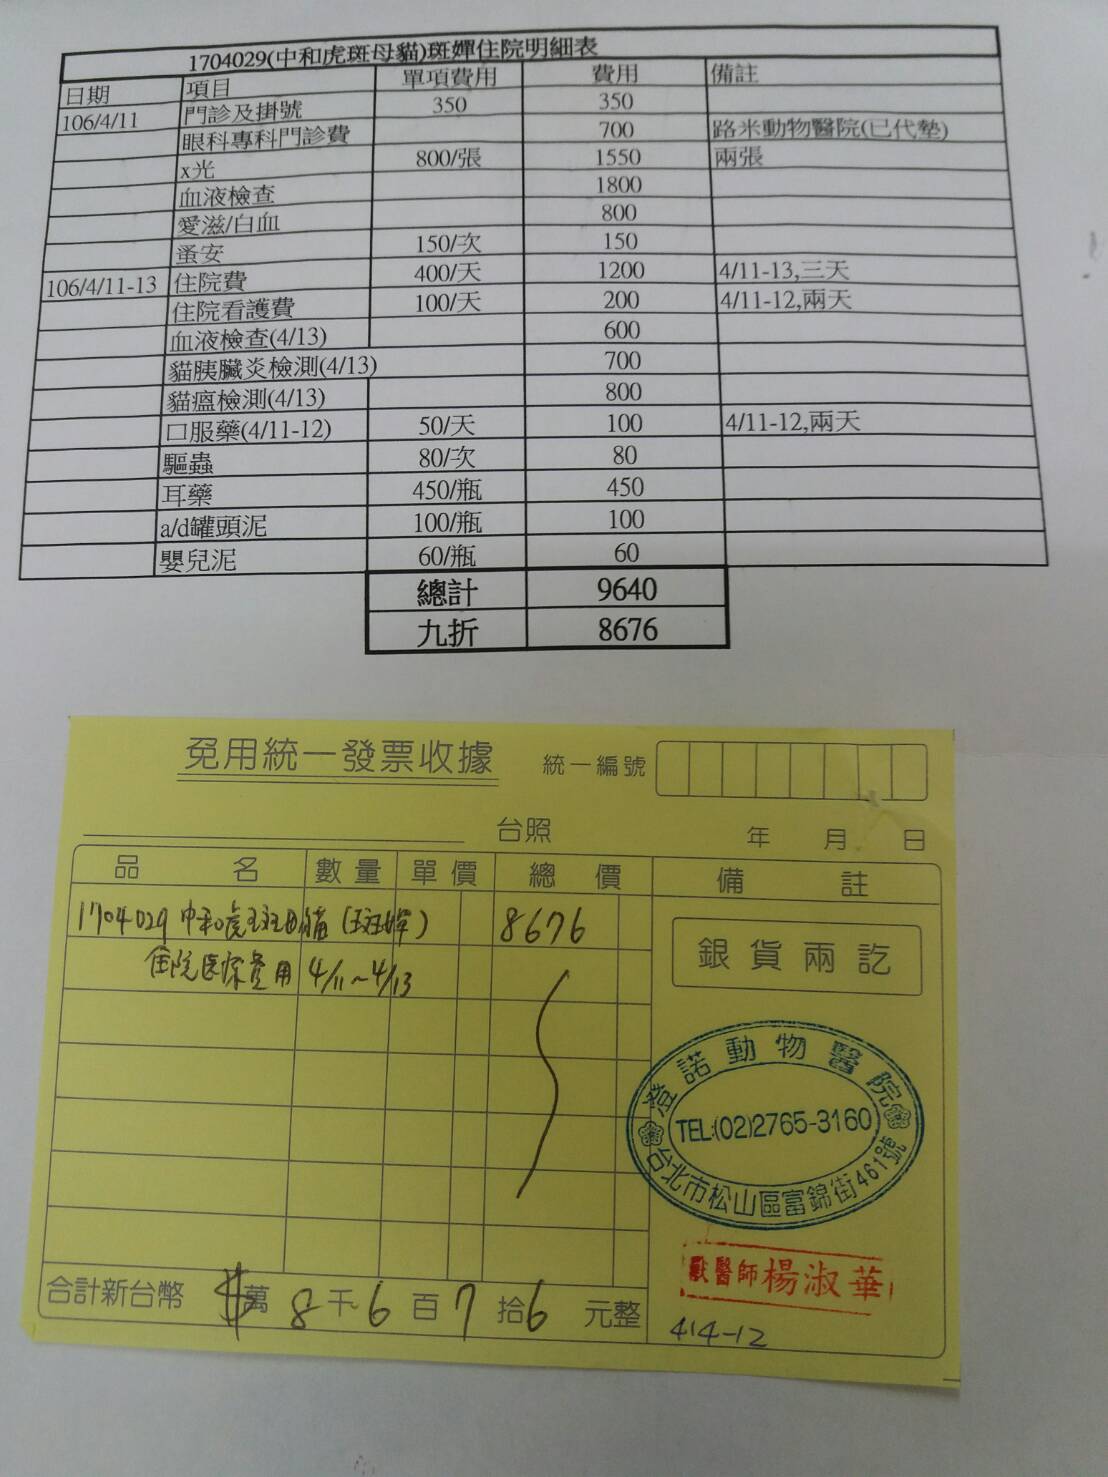 1704029(中和虎斑母貓)斑嬋住院明細表
日期 項目 單項費用 費用 備註
106/4/11 門診及掛號 350 350
眼科專科門診費 700 路米動物醫院(已代墊)
x光 800/張 1550 兩張
血液檢查 1800
愛滋/白血 800
蚤安 150/次 150
106/4/11-13 住院費 400/天 1200 4/11-13,三天
住院看護費 100/天 200 4/11-12,兩天
血液檢查(4/13) 600
貓胰臟炎檢測(4/13) 700
貓瘟檢測(4/13) 800
口服藥(4/11-12) 50/天 100 4/11-12,兩天
驅蟲 80/次 80
耳藥 450/瓶 450
a/d罐頭泥 100/瓶 100
嬰兒泥 60/瓶 60
總計 9640
九折 8676
免用統一發票收據 統一編號
台照 年 月 日
品名 數量 單價 總價 備註
1704029 中和虎斑母貓(斑嬋) 8676
住院医療費用 4/11~4/13
銀貨兩訖
澄諾動物醫院
TEL:(02)2765-3160
台北市松山區富錦街461號
獸醫師楊淑華
合計新台幣 萬 8千6百7拾6元整
414-12